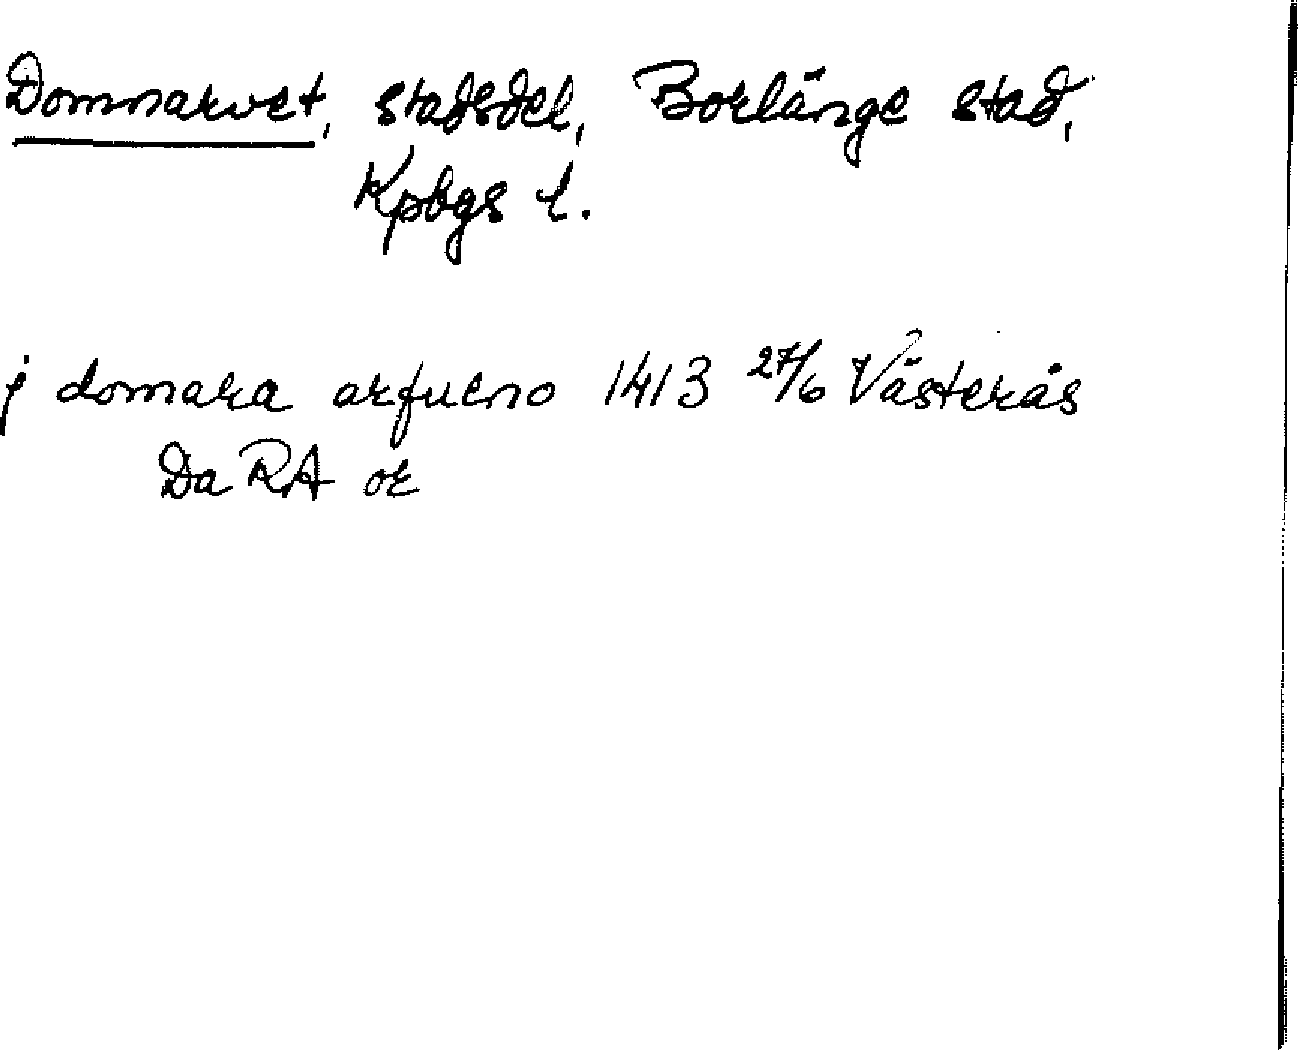 Domnarvet, stadsdel, Borlänge stad,
Kpbgs l.
j domara arfueno 1413 27/6 Västerås
Da RA or